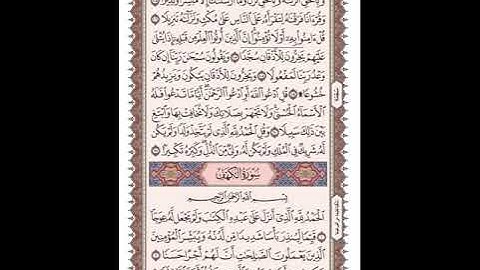 وَبِٱلْحَقِّ نَزَلَ
وَقُرْءَانًا فَرَقْنَٰهُ لِتَقْرَأَهُۥ عَلَى ٱلنَّاسِ عَلَىٰ مُكْثٍ وَنَزَّلْنَٰهُ تَنزِيلًا
قُلْ ءَامِنُوا۟ بِهِۦٓ أَوْ لَا تُؤْمِنُوٓا۟ إِنَّ ٱلَّذِينَ أُوتُوا۟ ٱلْعِلْمَ مِن قَبْلِهِۦٓ إِذَا يُتْلَىٰ
عَلَيْهِمْ يَخِرُّونَ لِلْأَذْقَانِ سُجَّدًا وَيَقُولُونَ سُبْحَٰنَ رَبِّنَآ إِن كَانَ
وَعْدُ رَبِّنَا لَمَفْعُولًا وَيَخِرُّونَ لِلْأَذْقَانِ يَبْكُونَ وَيَزِيدُهُمْ
خُشُوعًا قُلِ ٱدْعُوا۟ ٱللَّهَ أَوِ ٱدْعُوا۟ ٱلرَّحْمَٰنَ أَيًّا مَّا تَدْعُوا۟ فَلَهُ
ٱلْأَسْمَآءُ ٱلْحُسْنَىٰ وَلَا تَجْهَرْ بِصَلَاتِكَ وَلَا تُخَافِتْ بِهَا وَٱبْتَغِ
بَيْنَ ذَٰلِكَ سَبِيلًا وَقُلِ ٱلْحَمْدُ لِلَّهِ ٱلَّذِى لَمْ يَتَّخِذْ وَلَدًا وَلَمْ يَكُن
لَّهُۥ شَرِيكٌ فِى ٱلْمُلْكِ وَلَمْ يَكُن لَّهُۥ وَلِىٌّ مِّنَ ٱلذُّلِّ وَكَبِّرْهُ تَكْبِيرًۢا
سُورَةُ الكَهْفِ
بِسْمِ ٱللَّهِ ٱلرَّحْمَٰنِ ٱلرَّحِيمِ
ٱلْحَمْدُ لِلَّهِ ٱلَّذِىٓ أَنزَلَ عَلَىٰ عَبْدِهِ ٱلْكِتَٰبَ وَلَمْ يَجْعَل لَّهُۥ عِوَجَا
قَيِّمًا لِّيُنذِرَ بَأْسًا شَدِيدًا مِّن لَّدُنْهُ وَيُبَشِّرَ ٱلْمُؤْمِنِينَ
ٱلَّذِينَ يَعْمَلُونَ ٱلصَّٰلِحَٰتِ أَنَّ لَهُمْ أَجْرًا حَسَنًا